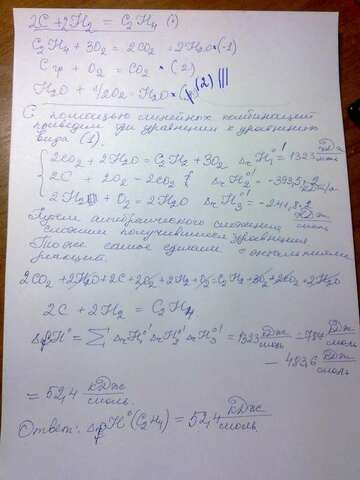 2C + 2H₂ = C₂H₄ (1)
C₂H₄ + 3O₂ = 2CO₂ + 2H₂O × (-1)
C гр + O₂ = CO₂ • (2)
H₂O + 1/2O₂ = H₂O × (2)
С помощью линейных комбинаций
приводим три уравнения к уравнению
вида (1).
2CO₂ + 2H₂O = C₂H₂ + 3O₂ ΔrH₁⁰' = 1323 кДж/моль
2C + 2O₂ = 2CO₂ ΔrH₂⁰' = -393,5·2 кДж/м
2H₂ + O₂ = 2H₂O ΔrH₃⁰' = -241,8·2 кДж/моль
Путем алгебраического сложения
сложим получившиеся уравнения
То же самое сделаем с энтальпиями
реакций.
2CO₂ + 2H₂O + 2C + 2O₂ + 2H₂ + O₂ = C₂H₄ + 3O₂ + 2CO₂ + 2H₂O
2C + 2H₂ = C₂H₄
ΔfH⁰ = Σ ΔrH₁⁰' ΔrH₂⁰' ΔrH₃⁰' = 1323 кДж/моль - 787 кДж/моль
- 483,6 кДж/моль
= 52,4 кДж/моль.
Ответ: ΔfH⁰(C₂H₄) = 52,4 кДж/моль.